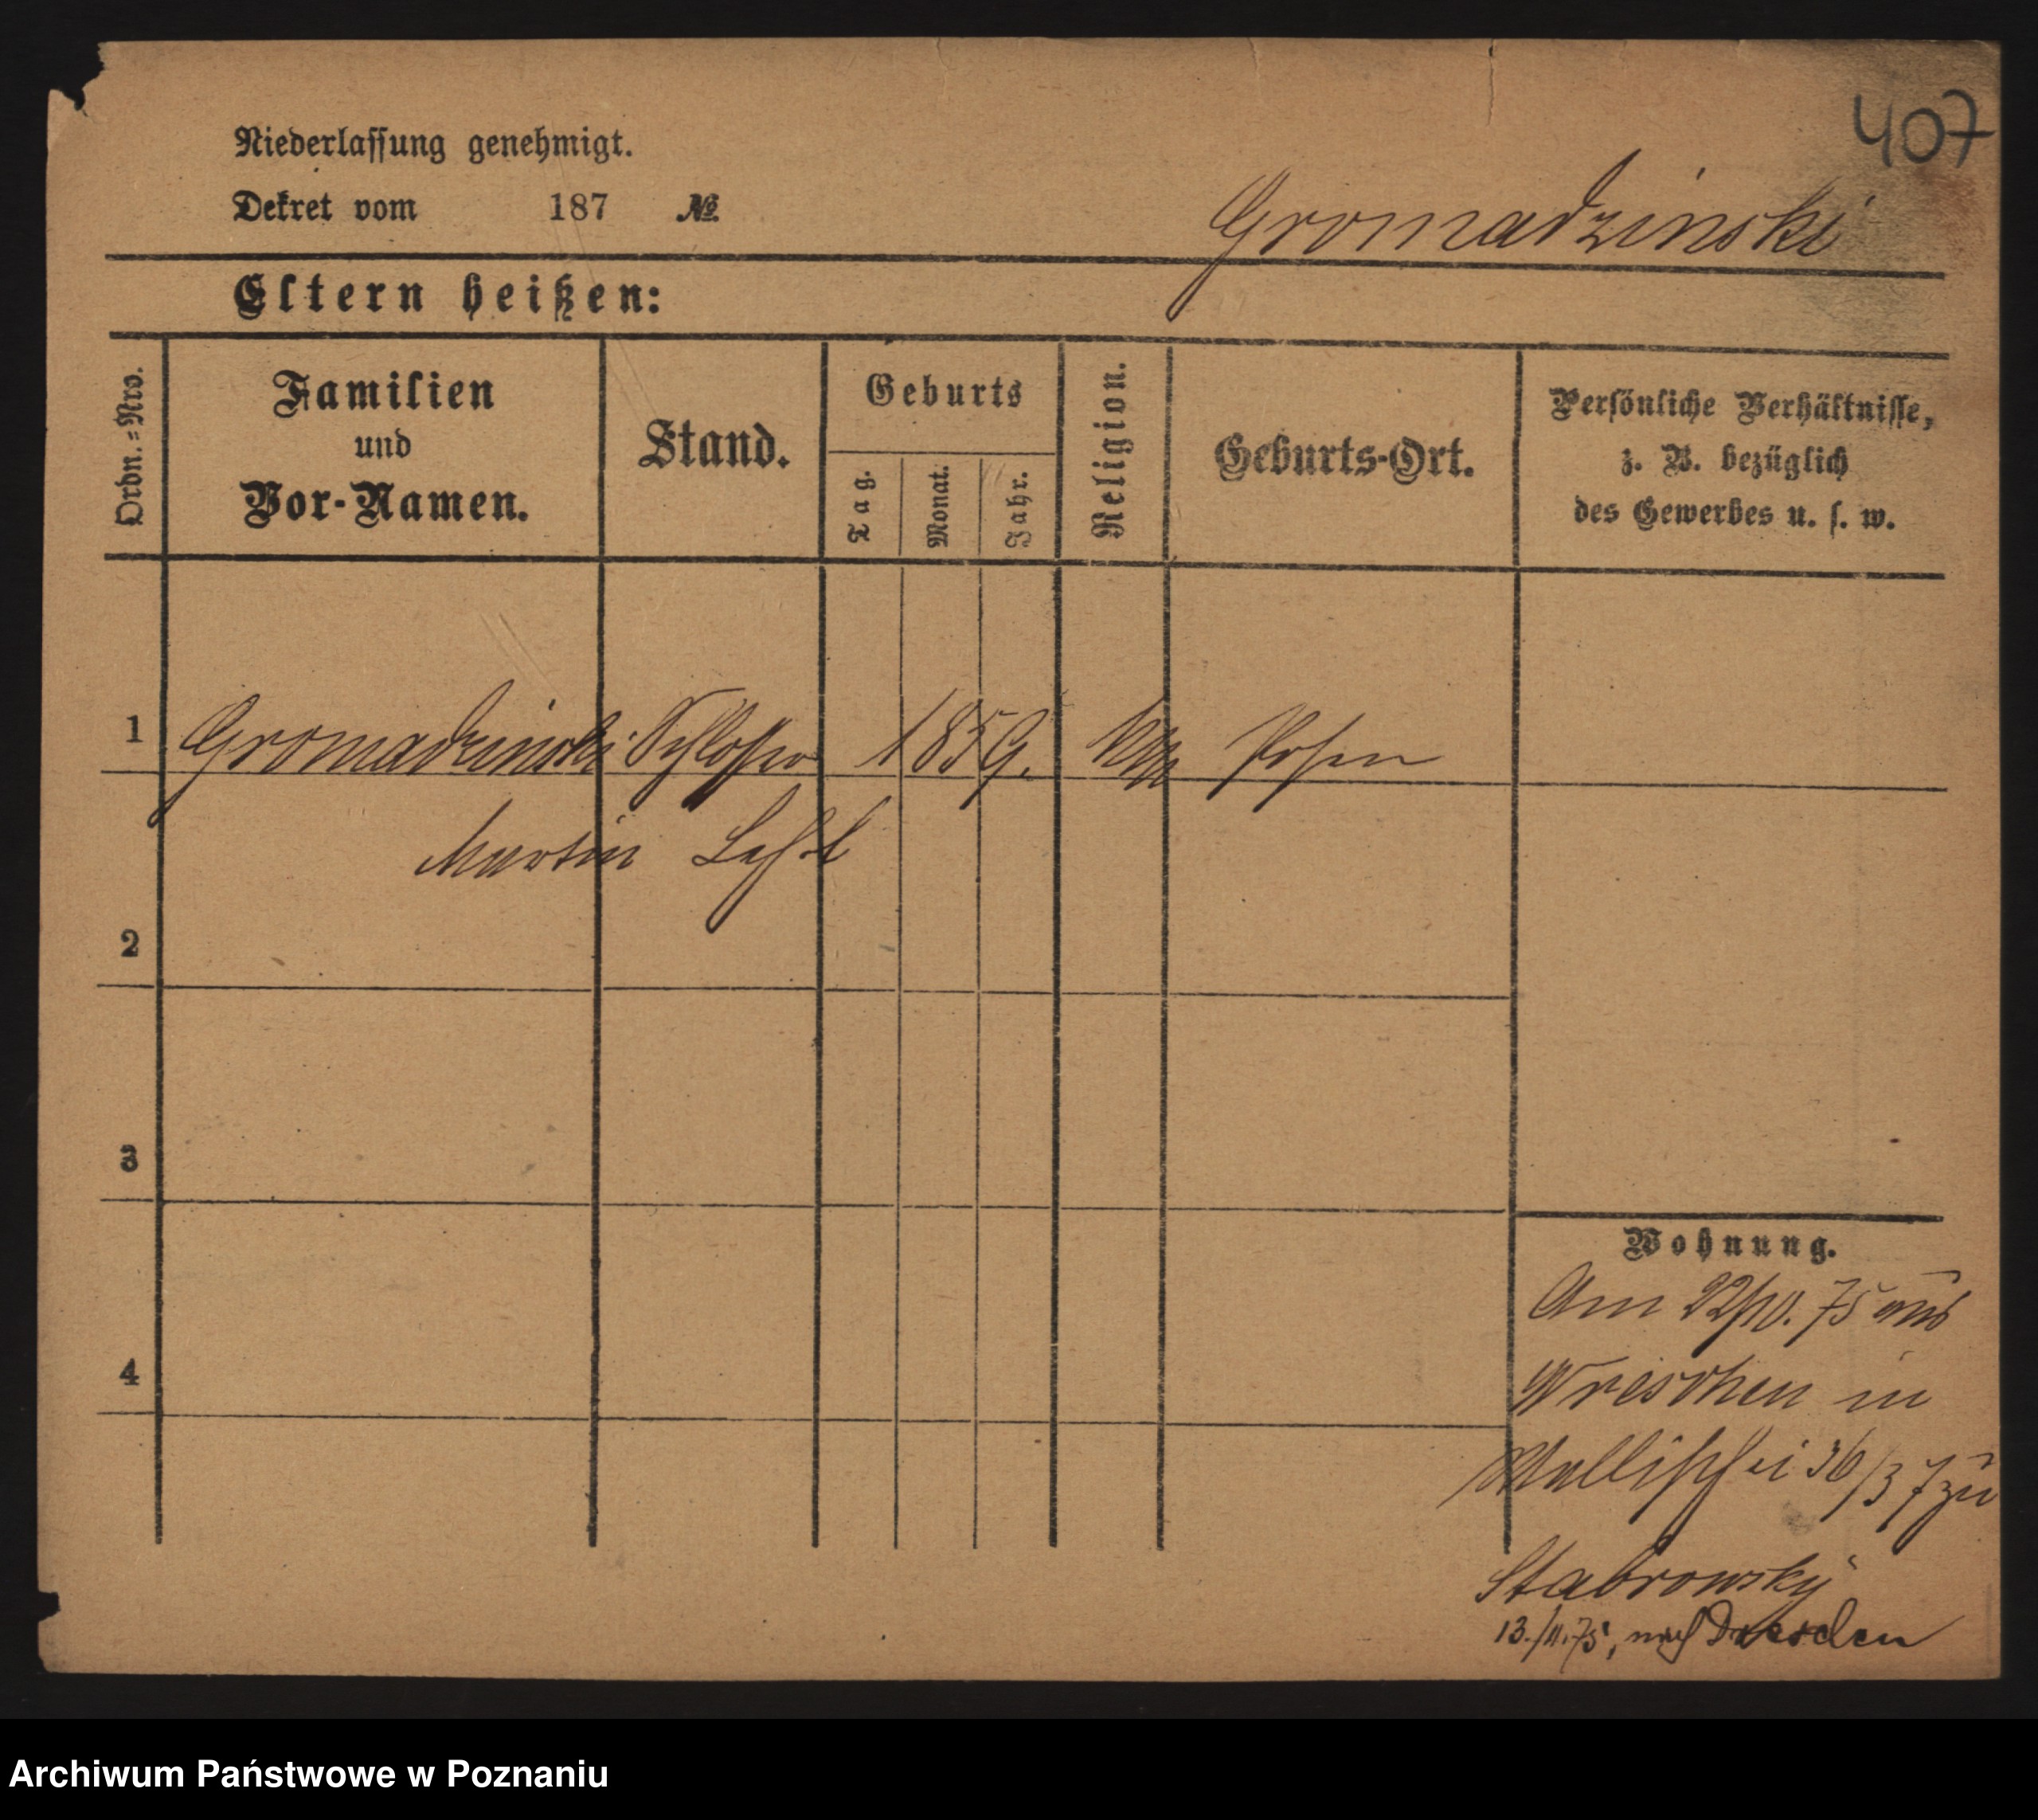 407
Niederlassung genehmigt.
Dekret vom 187 №
Gromadzinski
Eltern heißen:
Ordn.=Nro.
Familien
und
Vor-Namen.
Stand.
Geburts
Tag.
Monat.
Jahr.
Religion.
Geburts-Ort.
Persönliche Verhältnisse,
z. B. bezüglich
des Gewerbes u. s. w.
1 Gromadzinski Schlosser 1859. Posen
Martin
2
3
4
Wohnung.
Am 22/10. 75 aus
Wreschen in
Wallischei 36/37 zu
Stabrowsky
13./11.75, nach Dresden
Archiwum Państwowe w Poznaniu